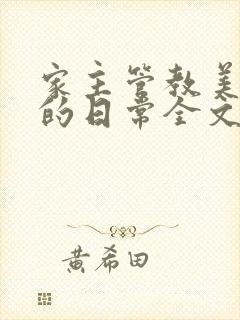 家主管教美
的日常全文
黄希田